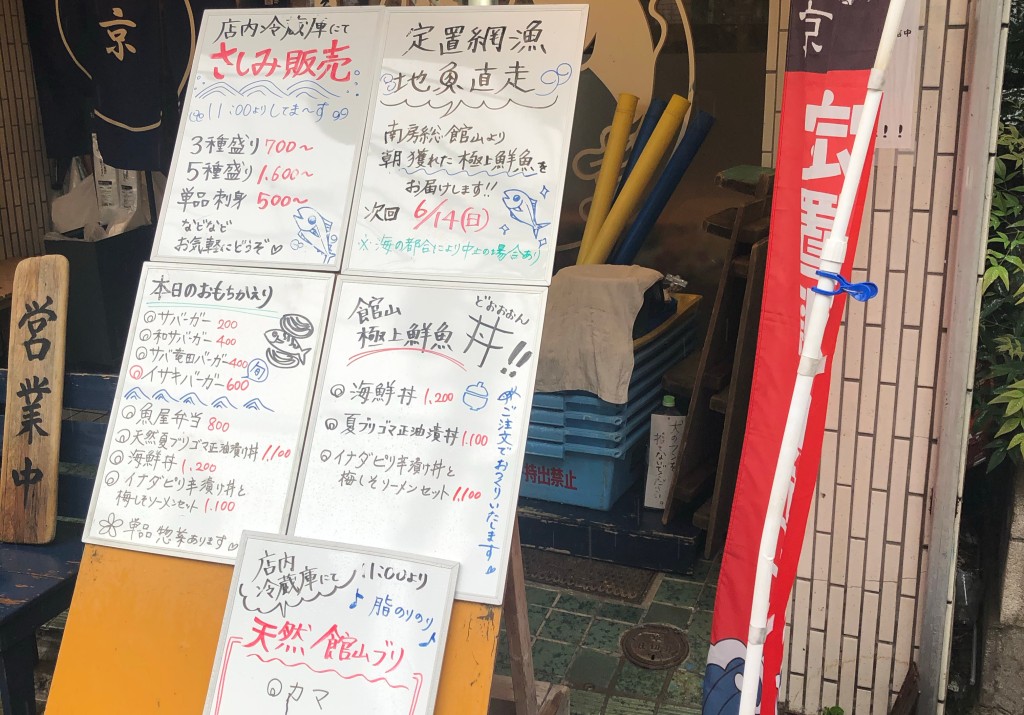 京
店内冷蔵庫にて
さしみ販売
11:00よりしてま〜す
3種盛り 700〜
5種盛り 1.600〜
単品刺身 500〜
などなど
お気軽にどうぞ♡
定置網漁
地魚直走
南房総館山より
朝獲れた極上鮮魚を
お届けします!!
次回 6/14(日)
※海の都合により中止の場合あり
本日のおもちかえり
◎サバーガー 200
◎和サバーガー 400
◎サバ竜田バーガー 400
旬
◎イサキバーガー 600
◎魚屋弁当 800
◎天然夏ブリゴマ正油漬丼 1.100
◎海鮮丼 1.200
◎イナダピリ辛漬け丼と
梅しそソーメンセット 1.100
単品惣菜あります♡
館山
極上鮮魚
どおおおん
丼!!
◎海鮮丼 1.200
◎夏ブリゴマ正油漬丼 1.100
◎イナダピリ辛漬け丼と
梅しそソーメンセット 1.100
ご注文でおつくりいたします♡
店内
冷蔵庫にて
11:00より
♪脂のりのり♪
天然館山ブリ
◎カマ
営業中
持出禁止
京
定置
中
!!